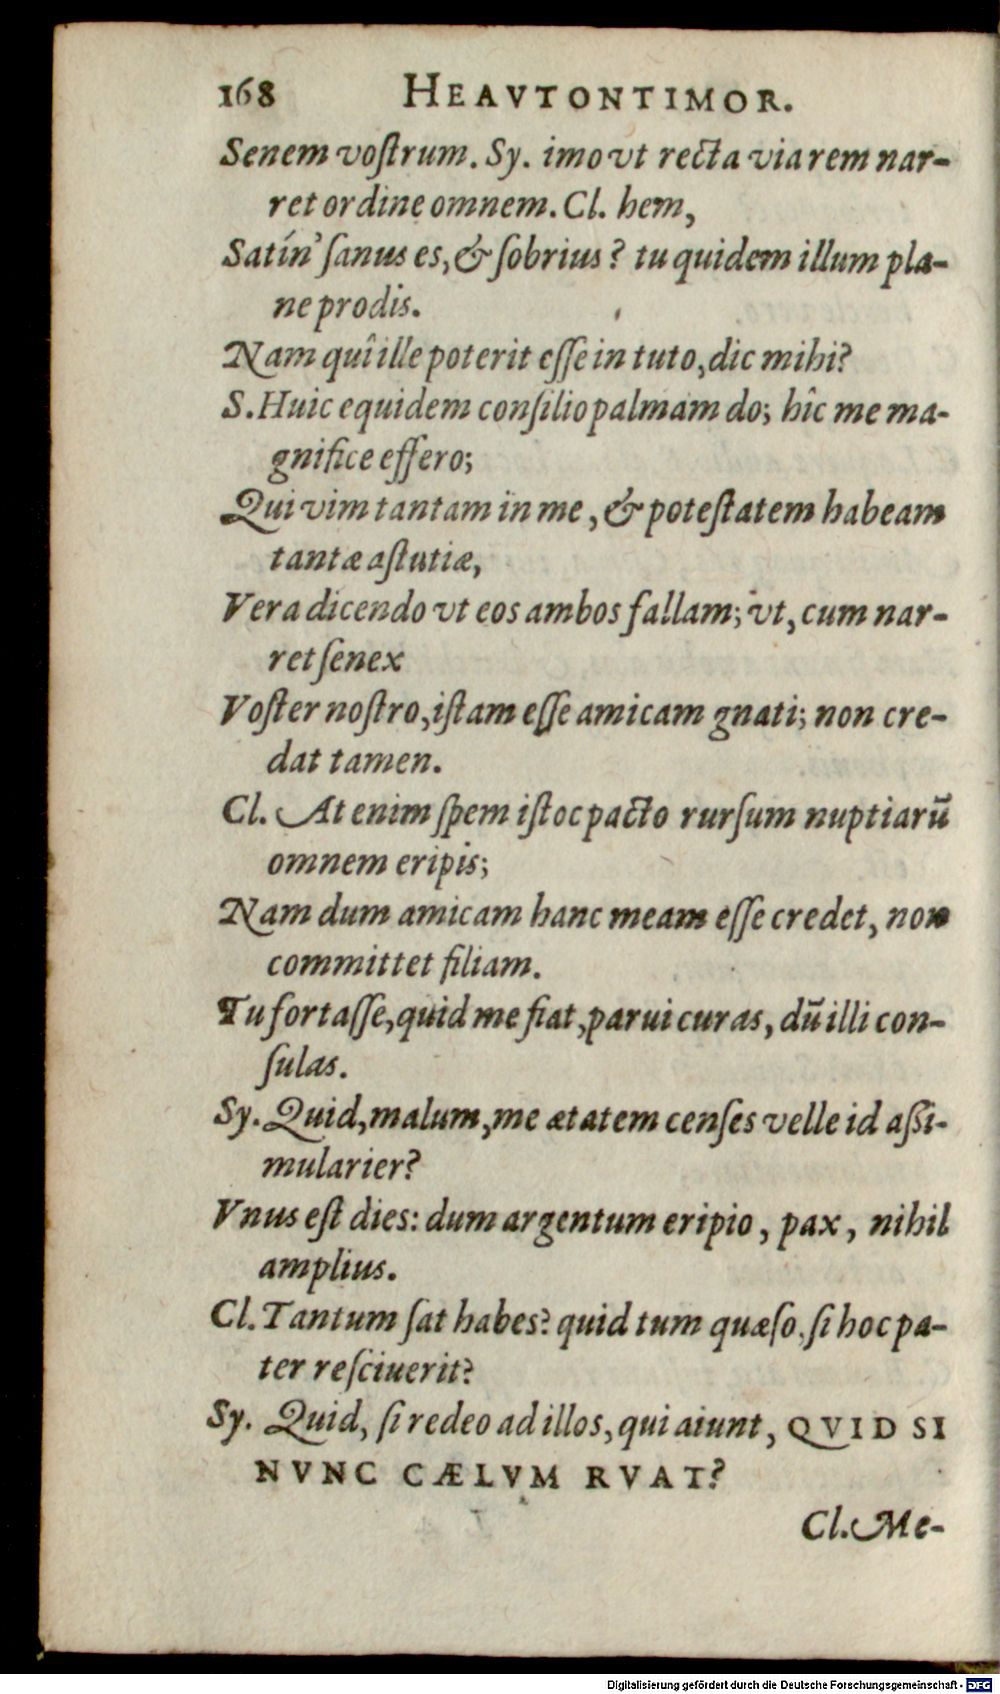 168 HEAVTONTIMOR.
Senem voſtrum. Sy. imo vt recta via rem nar-
ret ordine omnem. Cl. hem,
Satín' ſanus es, & ſobrius? tu quidem illum pla-
ne prodis.
Nam quî ille poterit eſſe in tuto, dic mihi?
S. Huic equidem conſilio palmam do; hîc me ma-
gnifice effero;
Qui vim tantam in me, & poteſtatem habeam
tantæ aſtutiæ,
Vera dicendo vt eos ambos fallam; vt, cum nar-
ret ſenex
Voſter noſtro, iſtam eſſe amicam gnati; non cre-
dat tamen.
Cl. At enim ſpem iſtoc pacto rurſum nuptiarū
omnem eripis;
Nam dum amicam hanc meam eſſe credet, non
committet filiam.
Tu fortaſſe, quid me fiat, parui curas, dū illi con-
ſulas.
Sy. Quid, malum, me ætatem cenſes velle id aſsi-
mularier?
Vnus eſt dies: dum argentum eripio, pax, nihil
amplius.
Cl. Tantum ſat habes? quid tum quæſo, ſi hoc pa-
ter reſciuerit?
Sy. Quid, ſi redeo ad illos, qui aiunt, QVID SI
NVNC CÆLVM RVAT?
Cl. Me-
Digitalisierung gefördert durch die Deutsche Forschungsgemeinschaft - DFG